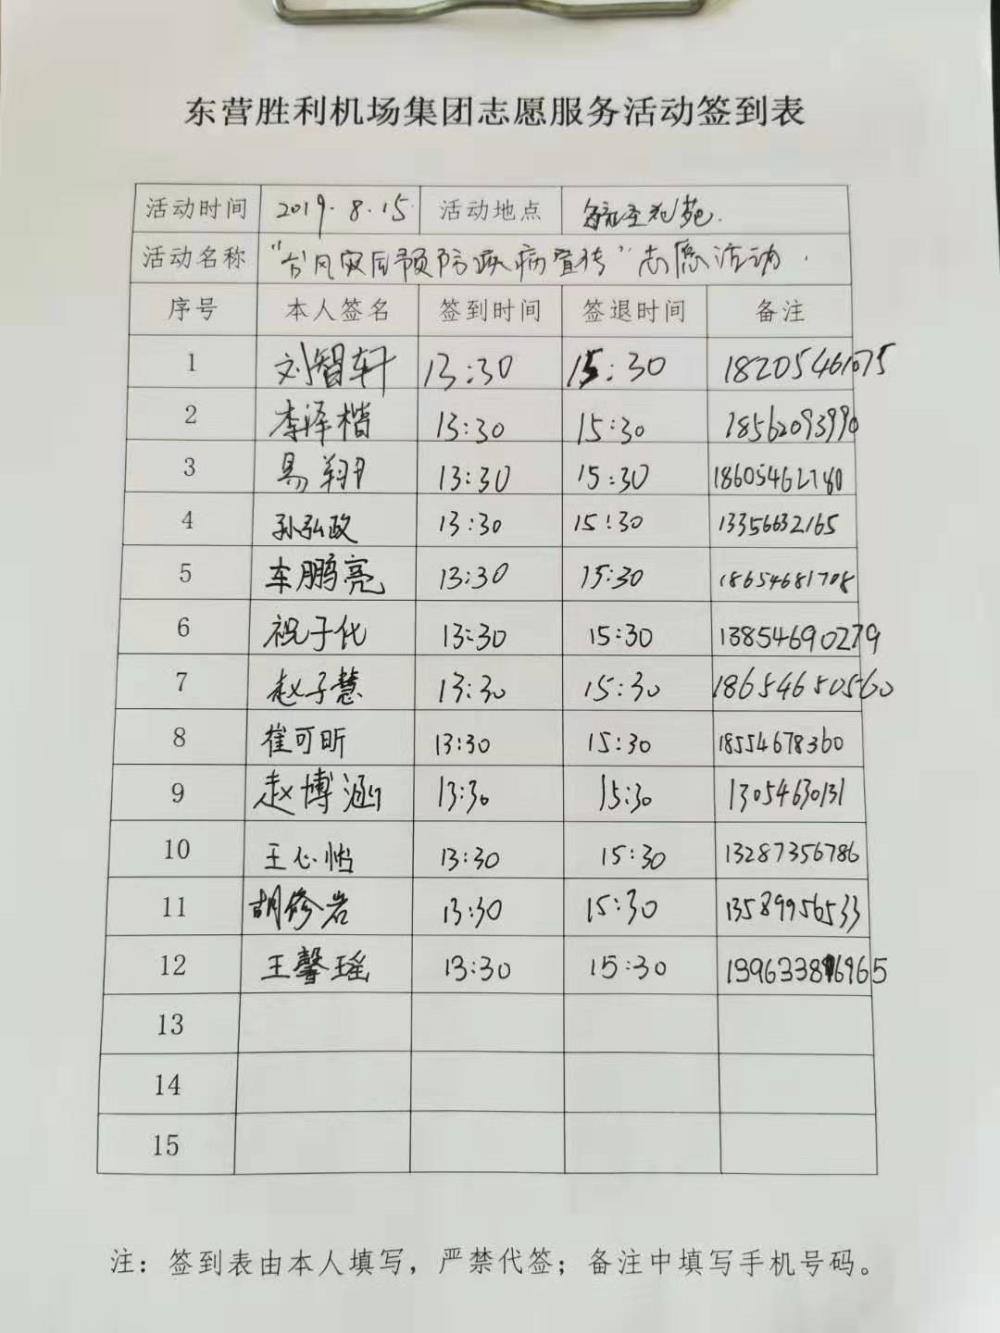 东营胜利机场集团志愿服务活动签到表
活动时间 2019.8.15 活动地点 花苑.
活动名称 "台风灾后预防疾病宣传"志愿活动.
序号 本人签名 签到时间 签退时间 备注
1 刘智轩 13:30 15:30 18205461075
2 李泽楷 13:30 15:30 18562093990
3 易翔 13:30 15:30 18605462780
4 孙弘政 13:30 15:30 13356632165
5 车鹏亮 13:30 15:30 18654681708
6 祝子化 13:30 15:30 13854690279
7 赵子慧 13:30 15:30 18654650560
8 崔可昕 13:30 15:30 18554678360
9 赵博涵 13:30 15:30 13054630131
10 王心怡 13:30 15:30 13287356786
11 胡修岩 13:30 15:30 13589956533
12 王馨瑶 13:30 15:30
13
14
15
注：签到表由本人填写，严禁代签；备注中填写手机号码。